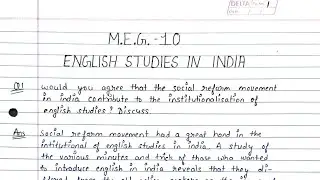 DELTA
M.E.G.-10
ENGLISH STUDIES IN INDIA
Q1 Would you agree that the social reform movement
in india contribute to the institutionalisation of
english studies? Discuss.
Ans Social reform movement had a great hand in the
intitutional of english studies in india. A study of
the various minutes and trick of those who wanted
to introduce english in india reveals that they di-